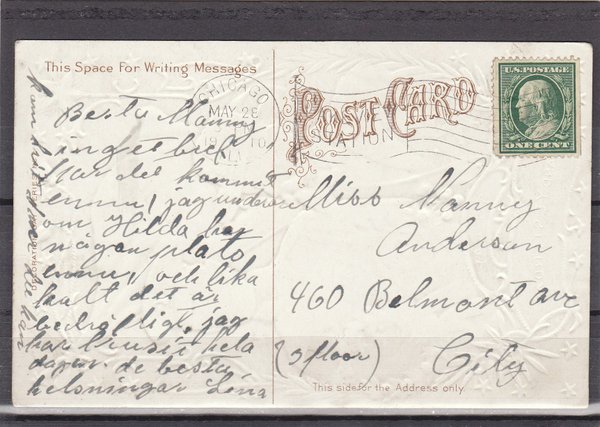 This Space For Writing Messages
POST CARD
U.S. POSTAGE
ONE CENT
CHICAGO
MAY 28
ILL.
STATION
Bersta Nanny
inget bref
har det kommit
ennu, jag undrar
om Hilda har
någon plats
ennu, och lika
kallt det är
jag
har hela
dagen. de besta
helsningar Lina
DECORATION DAY
Miss Nanny
Anderson
460 Belmont ave
(3 floor) City
This side for the Address only.